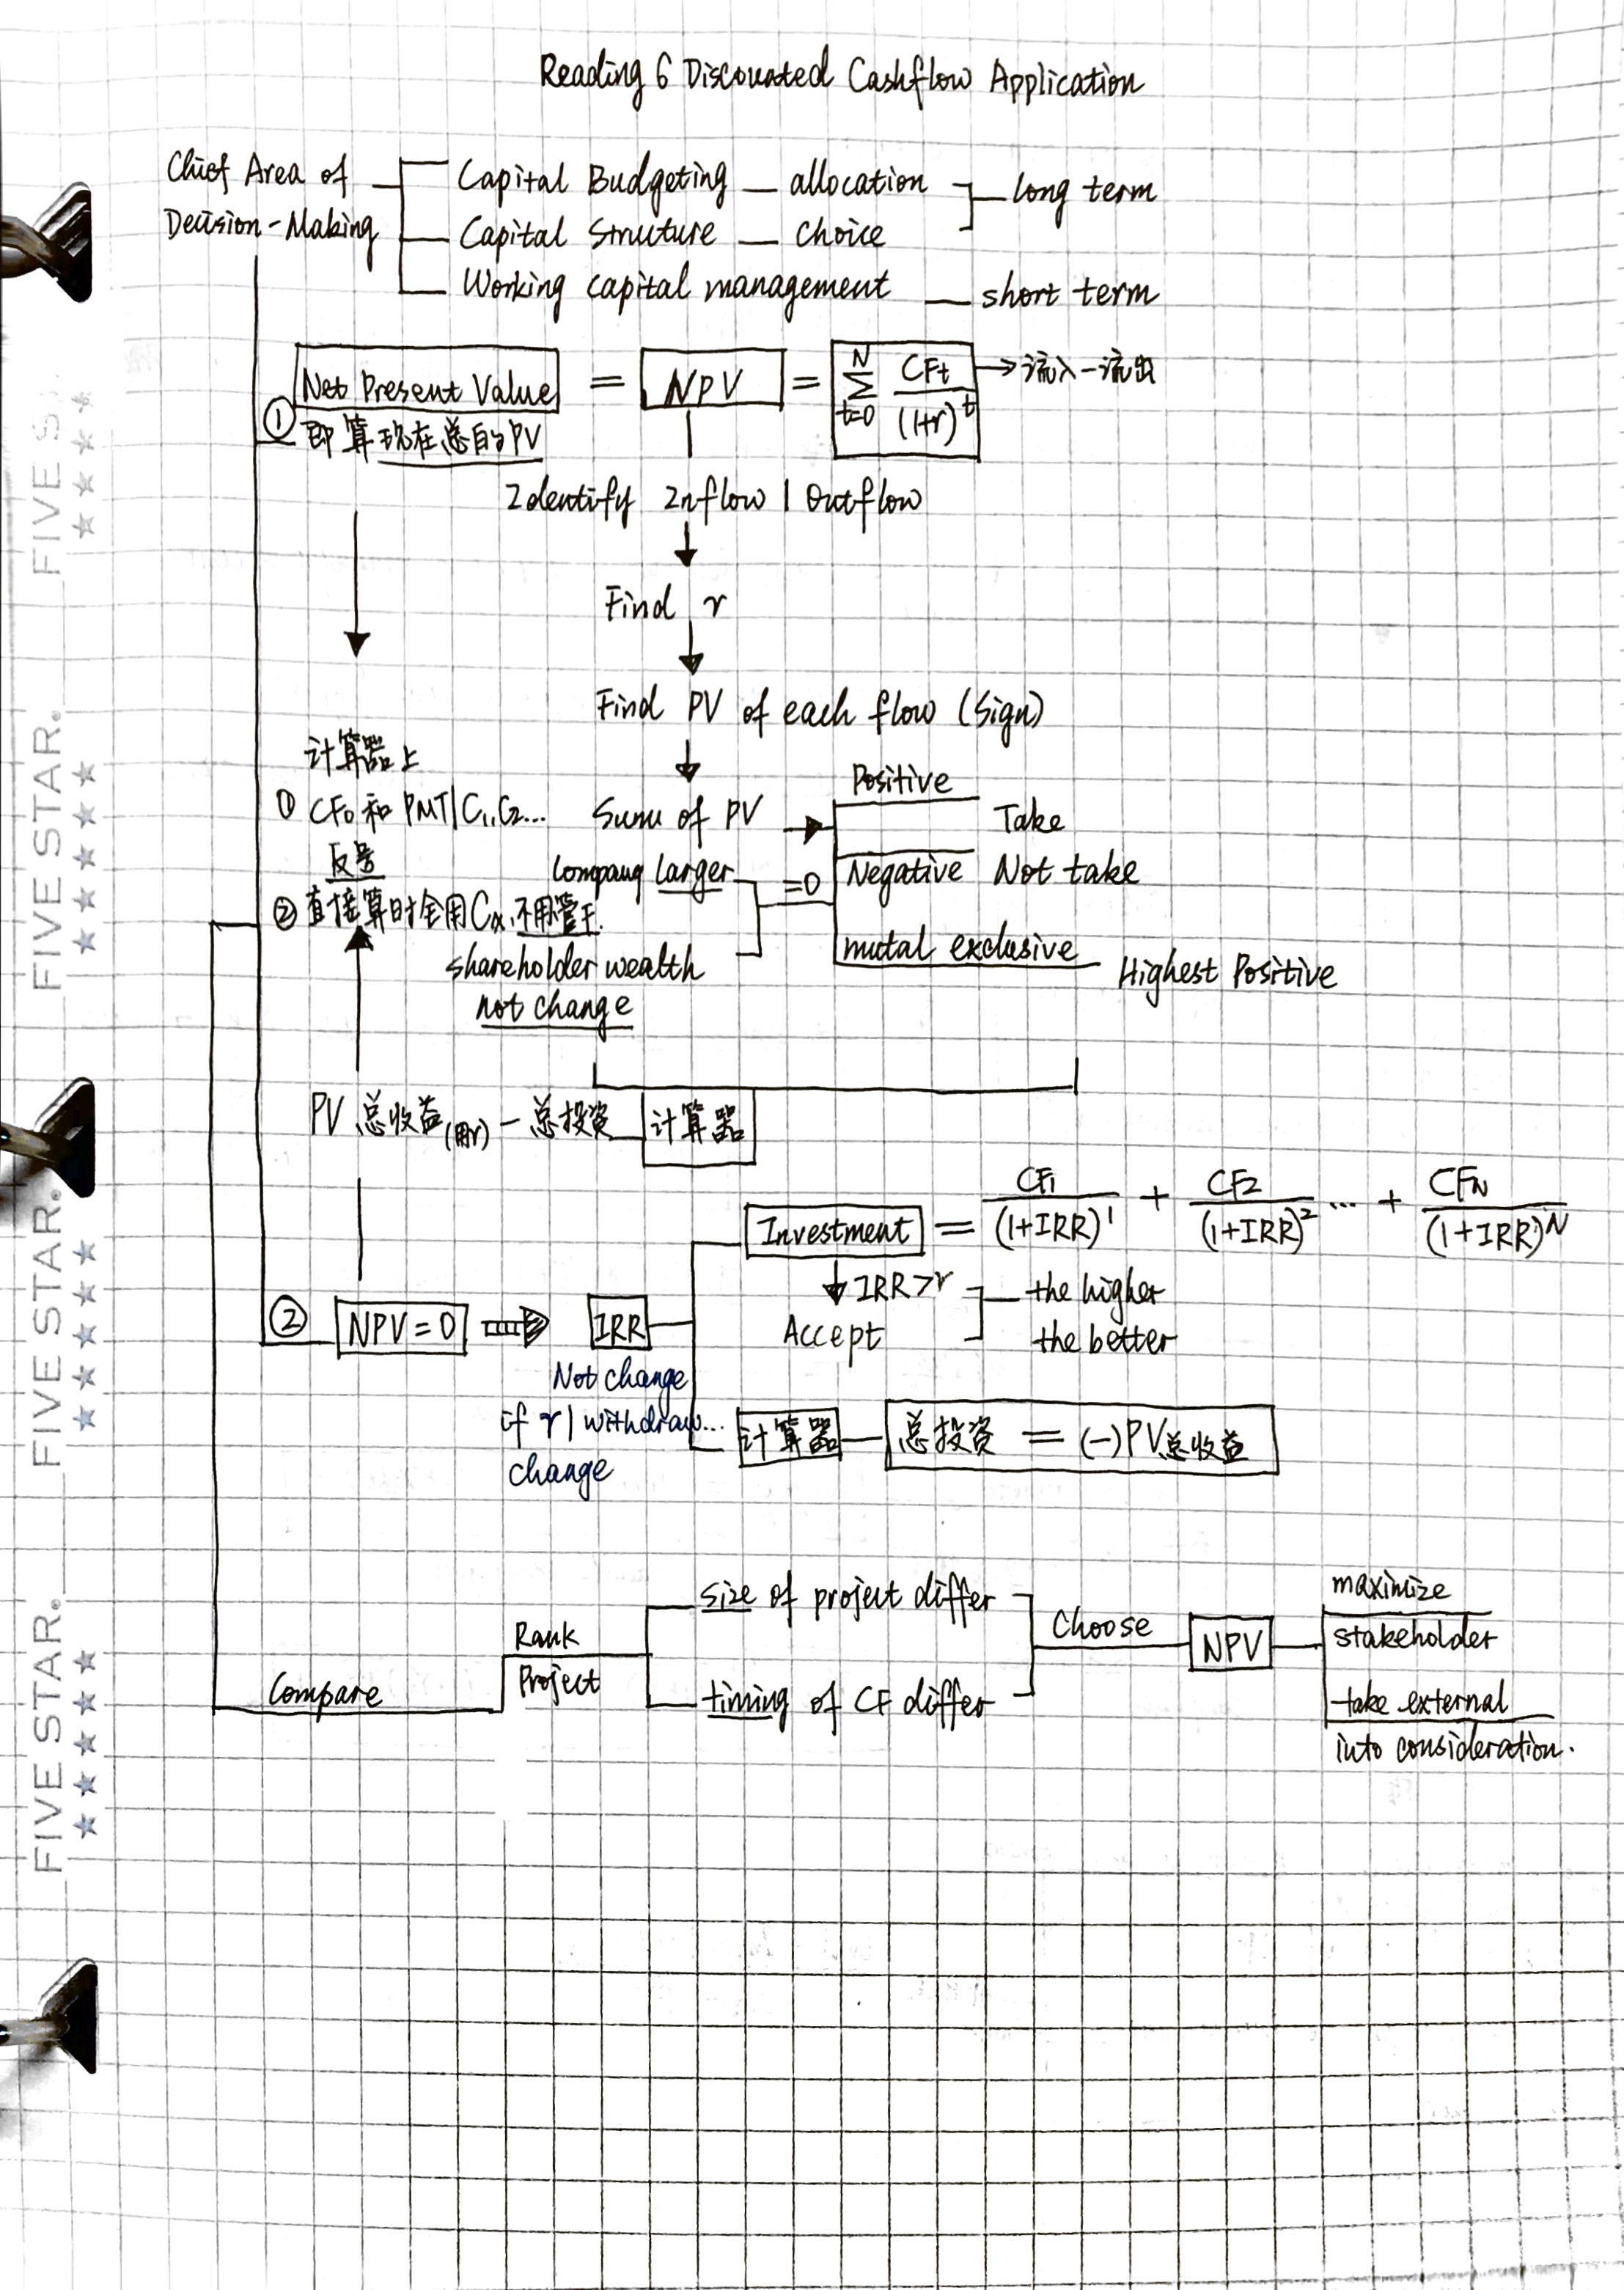 Reading 6 Discounted Cashflow Application
Chief Area of
Decision-Making
Capital Budgeting — allocation
Capital Structure — choice
long term
Working capital management — short term
① Net Present Value = NPV = \sum_{t=0}^{N} \frac{CF_t}{(1+r)^t} → 流入-流出
即算现在总的PV
Identify Inflow | Outflow
Find r
Find PV of each flow (Sign)
计算器上
① CF₀ 和 PMT|C₁,C₂...
反号
② 直接算时全用Cx,不用管正
Sum of PV
Positive Take
Negative Not take
mutal exclusive Highest Positive
=0
Company larger
shareholder wealth
not change
PV 总收益(用r) - 总投资 计算器
② NPV=0
IRR
Not change
if r | withdraw...
change
Investment = \frac{CF_1}{(1+IRR)^1} + \frac{CF_2}{(1+IRR)^2} ... + \frac{CF_N}{(1+IRR)^N}
IRR>r
Accept
the higher
the better
计算器 — 总投资 = (-)PV总收益
Compare
Rank
Project
size of project differ
timing of CF differ
Choose
NPV
maximize
stakeholder
take external
into consideration.
FIVE STAR.
FIVE STAR.
FIVE STAR.
FIVE S